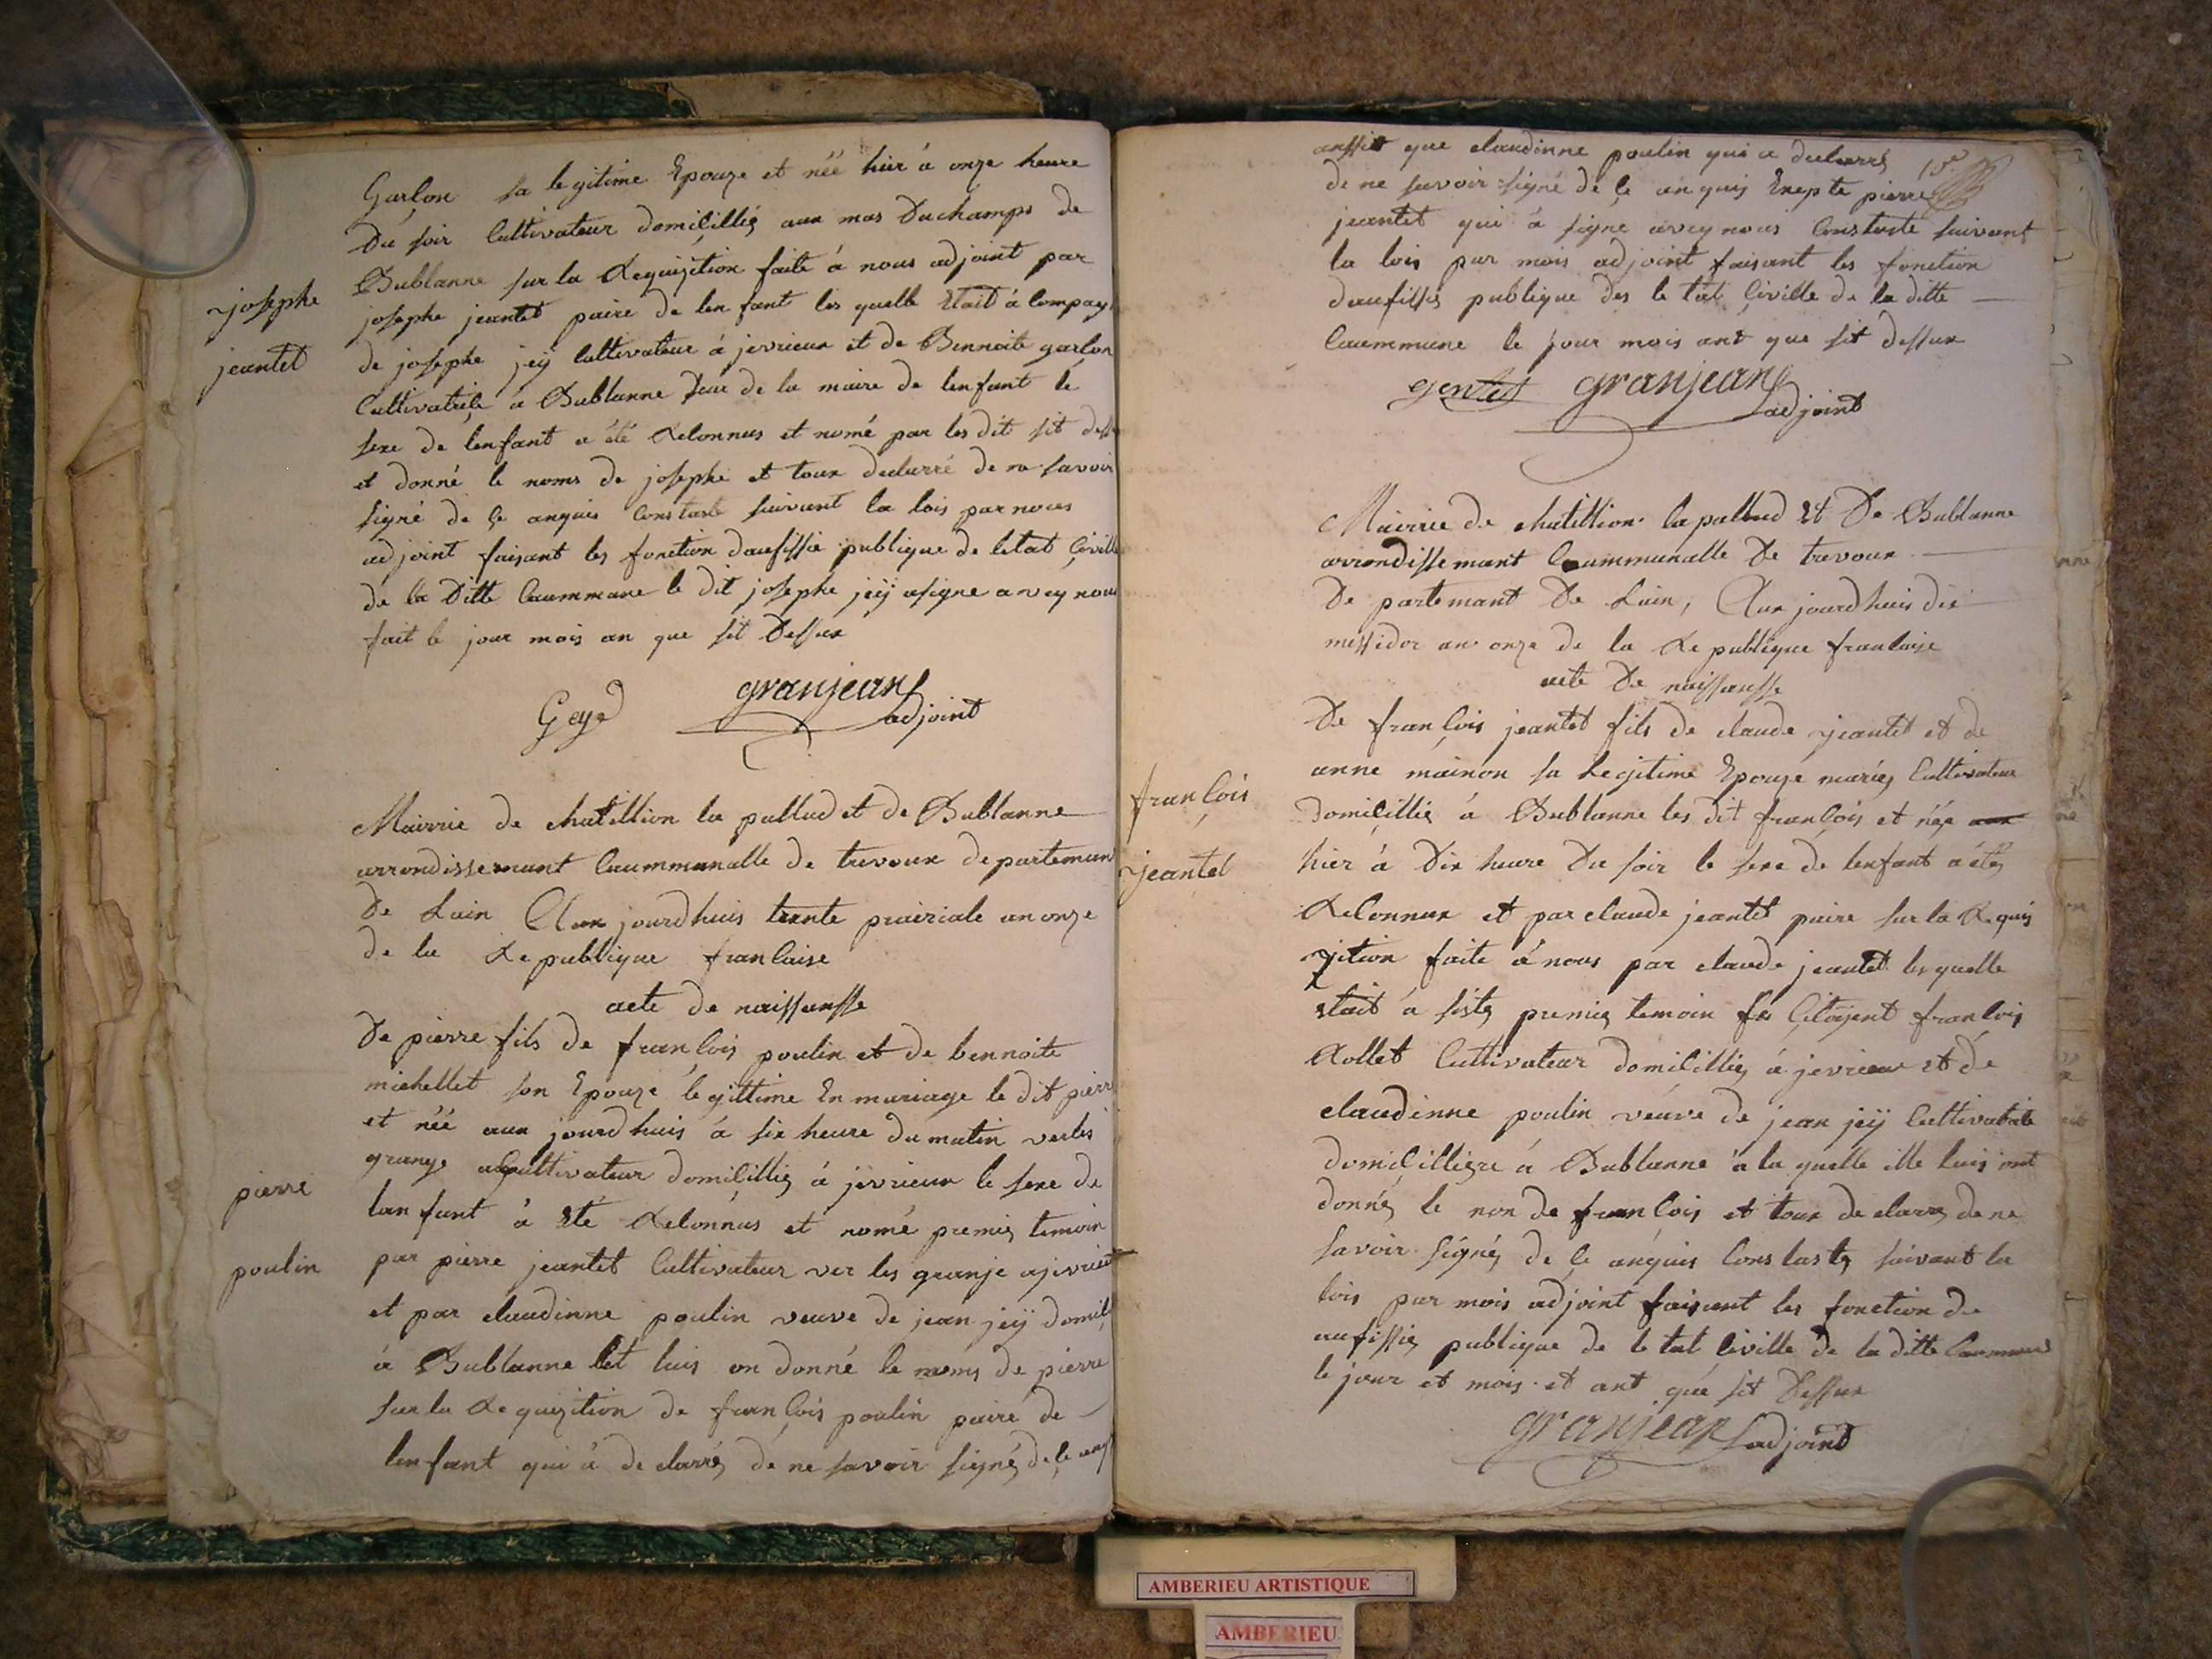 Garlon sa legitime Epouze et néé hier à onze heure
Du soir Cultivateur domicilliés aux mas Duchamps de
Bublanne sur la Requizition faite à nous adjoint par
josephe
josephe jeantet paire de len fant les quelle Etait à Compag
jeantet
de josephe jeÿ Cultivateur à jevrieux et de Bennoite garlon
Cultivatriçe a Bublanne seur de la maire de lenfant le
sexe de lenfant a été Reconnus et nomé par les dit sit dess
et donné le noms de josephe et toux declarré de ne savoir
signé de çe anquis Constaté suivant la lois par nous
adjoint faisant les fonction daufissié publique de letat Çiville
de la Ditte Caummune le dit josephe jeÿ asigne avey nous
fait le jour mois an que sit Dessux
Geye granjean
adjoint
Mairrie de chatillion la pallud et de Bublanne
arrondissemant Caummunalle de trevoux departeman
De Lain Aux jourdhuis trente prairiale an onze
de la Republique francaise
acte de naissansse
De pierre fils de françois poulin et de bennoite
michellet son Epouze legittime En mariage le dit pierr
et néé aux jourdhuis à six heure du matin verles
grange Cultivateur domicilliés à jevrieux le sexe de
pierre
lan fant à Eté Reconnus et nomé premiés temoin
poulin
par pierre jeantet Cultivateur ver les granje ajevrieu
et par claudinne poulin veuve de jean jeÿ domiç
à Bublanne let luis on donné le noms de pierre
sur la Requizition de françois poulin paire de
lenfant qui à declarrés de ne savoir signés de çe anq
aussit que claudinne poulin qui a declarrés
de ne savoir signé de çe anquis Exepte pierre
jeantet qui à signe avey nous Constaté suivant
la lois par mois adjoint faisant les fonction
daufissiés publique des le tat Çiville de la ditte
Caummune le jour mois ant que sit dessux
gentet granjean
adjoint
Mairrie de chatillion la pallud Et De Bublanne
arrondissemant Caummunalle De trevoux
De partemant De Lain, Aux jourdhuis dix
messidor an onze de la Republique francaise
acte De naissansse
De françois jeantet fils de claude jeantet et de
anne mainon sa Legitime Epouze mariés Cultivateur
françois
domiçilliés à Bublanne les dit françois et néé
jeantet
hier à Dix heure Du soir le sexe de lenfant a étés
Reconnux et par claude jeantet paire sur la Requis
zition faite à nous par claude jeantet les quelle
Etait a sistés premiés temoin Çitoyent francois
Rollet Cultivateur domicilliés à jevrieux et de
claudinne poulin veuve de jean jeÿ Cultivatriçe
domiçilliére à Bublanne a la quelle ille luis ont
donnés le non de francois et toux declarrés de ne
savoir signés de çe anquis Constastés suivant la
lois par mois adjoint faisant les fonction de
aufissiés publique de le tat Çiville de la ditte Caummune
le jour et mois et ant que sit Dessux
granjean adjoint
AMBERIEU ARTISTIQUE
AMBERIEU